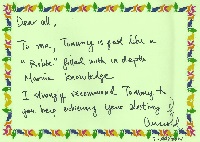 Dear all,
To me, Tommy is just like a
"Robot" filled with in depth
Marine knowledge
I strongly recommend Tommy to
you here achieving your destiny